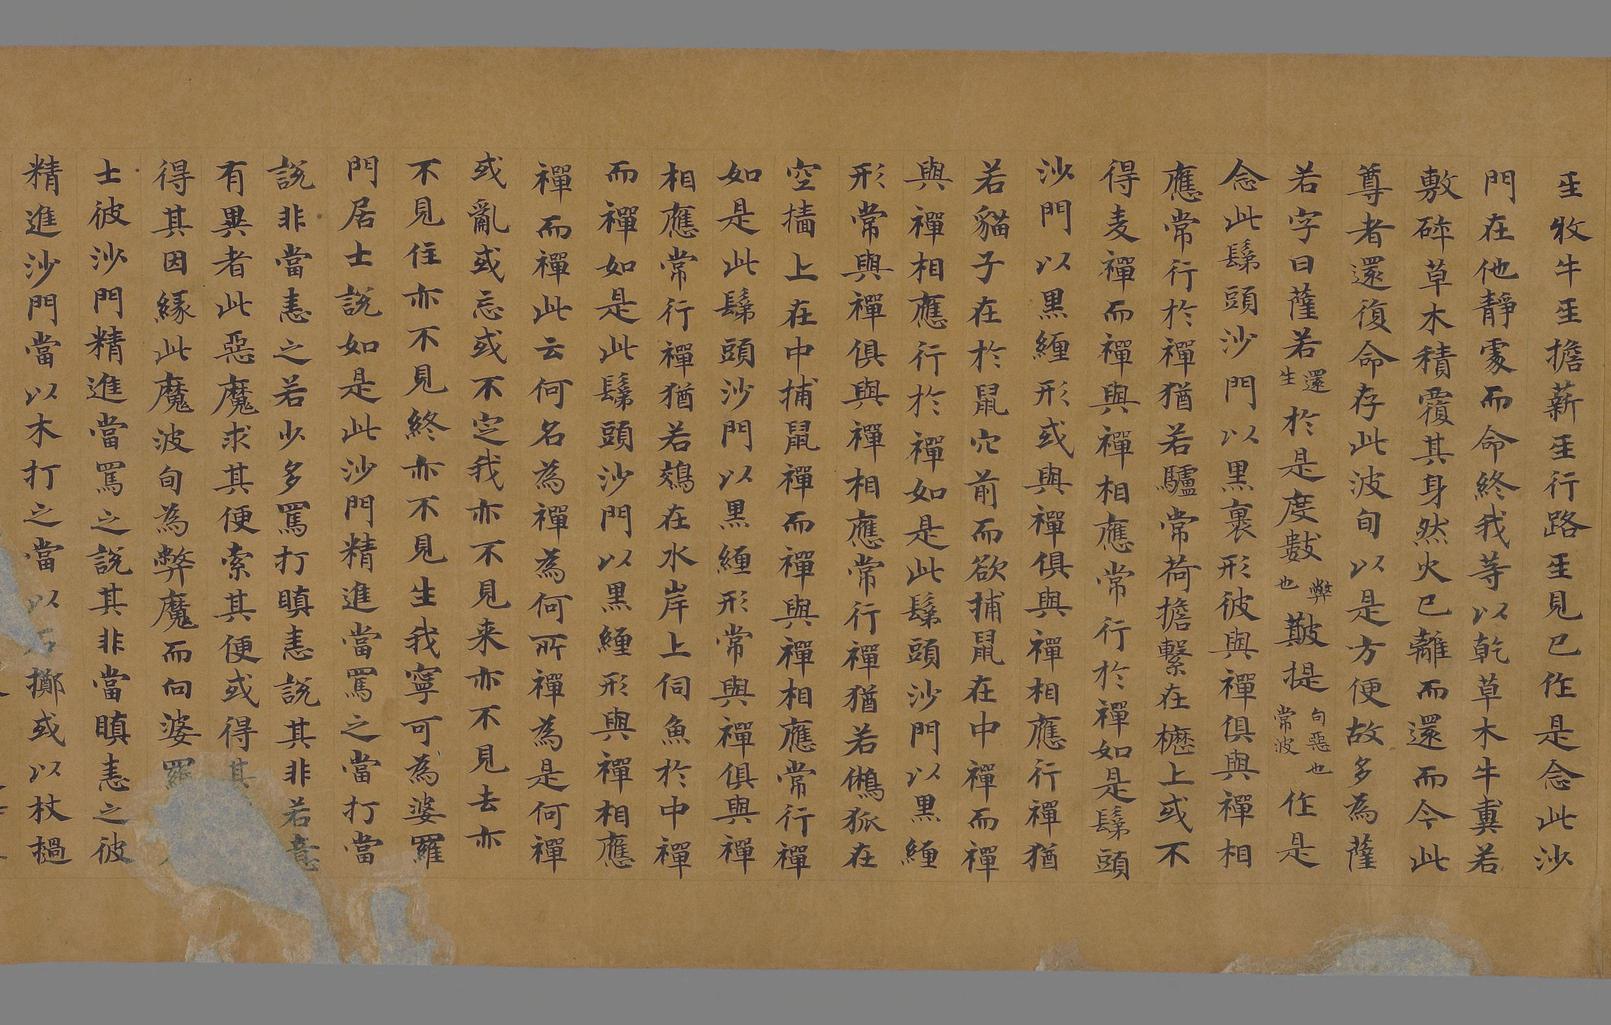 𤯔牧牛𤯔擔薪𤯔行路𤯔見已作是念此沙
門在他靜處而命終我等以乾草木牛糞若
敷碎草木積覆其身然火已離而還而今此
尊者還復命存此波旬以是方便故多為薩
若字曰薩若還生於是度數弊也䩗提常波旬惡也作是
念此髴頭沙門以黑裹形彼與禪俱與禪相
應常行於禪猶若驢常荷擔繫在櫪上或不
得麦禪而禪與禪相應常行於禪如是髴頭
沙門以黑纏形或與禪俱與禪相應行禪猶
若貓子在於鼠穴前而欲捕鼠在中禪而禪
與禪相應行於禪如是此髴頭沙門以黑纏
形常與禪俱與禪相應常行禪猶若鵂狐在
空墻上在中捕鼠禪而禪與禪相應常行禪
如是此髴頭沙門以黑纏形常與禪俱與禪
相應常行禪猶若鵁在水岸上伺魚於中禪
而禪如是此髴頭沙門以黑纏形與禪相應
禪而禪此云何名為禪為何所禪為是何禪
或亂或忘或不定我亦不見来亦不見去亦
不見住亦不見終亦不見生我寧可為婆羅
門居士說如是此沙門精進當罵之當打當
說非當恚之若少多罵打瞋恚說其非若意
有異者此惡魔求其便索其便或得其
得其因緣此魔波旬為弊魔而向婆羅
士彼沙門精進當罵之說其非當瞋恚之彼
精進沙門當以木打之當以石擲或以杖撾